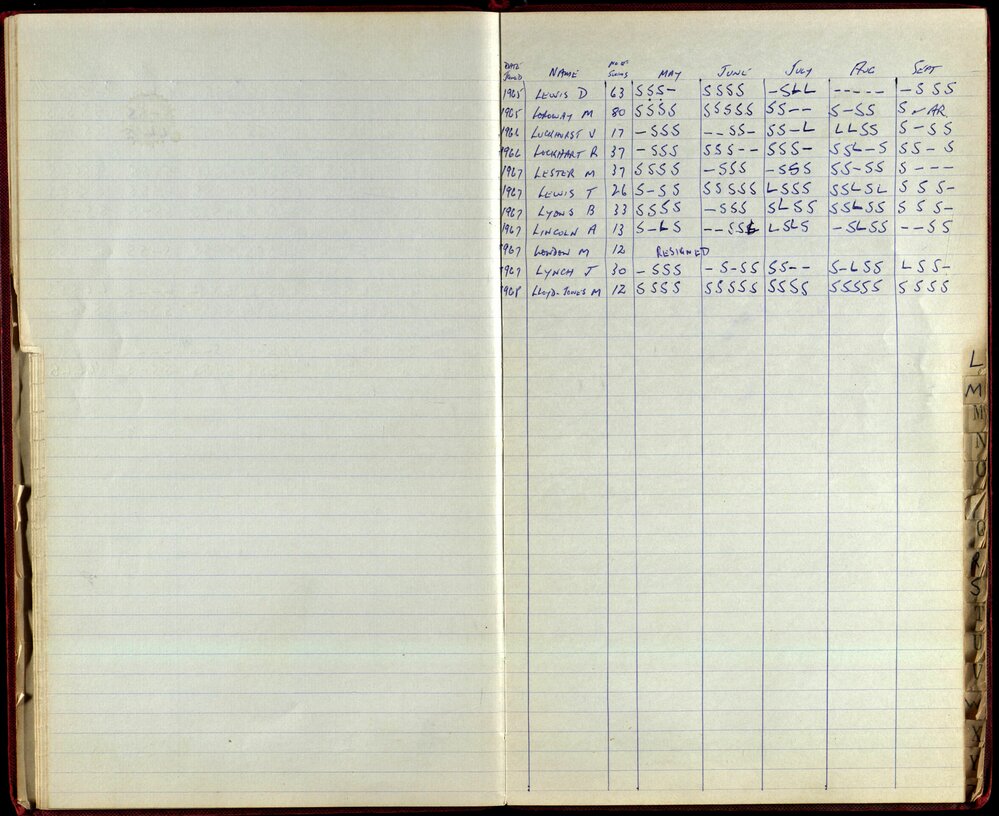 DATE JOINED NAME MAY JUNE JULY AUG SEPT
1965 LEWIS D 63 SSS- SSSS -SLL ----- -SSS
1965 M 80 SSSS SSSSS SS-- S-SS S AR.
1966 LUCKHURST V 17 -SSS --SS- SS-L LLSS S-SS
1966 LOCKHART R 37 -SSS SSS-- SSS- SSL-S SS-S
1967 LESTER M 37 SSSS -SSS -SSS SS-SS S---
1967 LEWIS T 26 S-SS SSSSS LSSS SSLSL SSS-
1967 LYONS B 33 SSSS -SSS SLSS SSLSS SSS-
1967 LINCOLN A 13 S-LS --SSL LSLS -SLSS --SS
1967 LONDON M 12 RESIGNED
1967 LYNCH J 30 -SSS -S-SS SS-- S-LSS LSS-
1968 LLOYD-JONES M 12 SSSS SSSSS SSSS SSSSS SSSS
L
M
N
O
R
S
T
U
V
W
X
Y